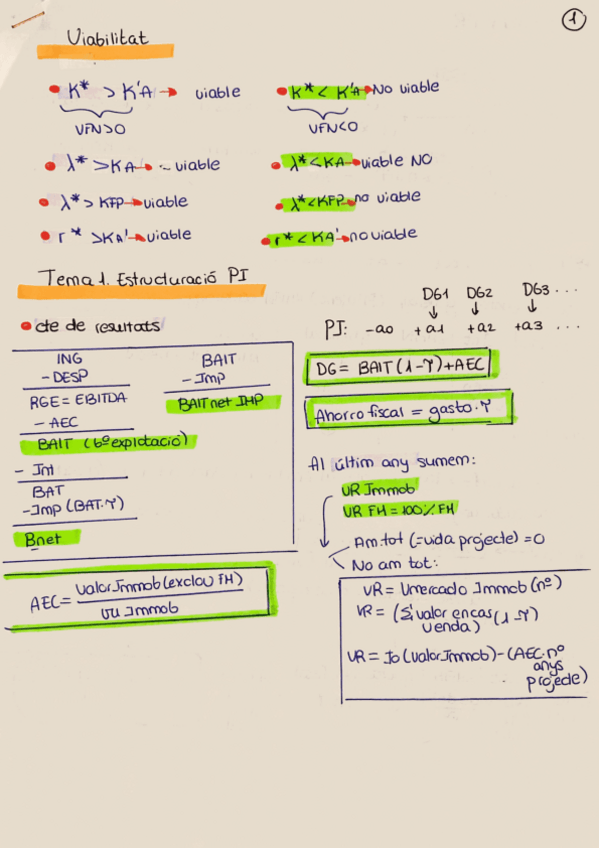 1
Viabilitat
• K* > K'A → viable
VFN>0
• K* < K'A → No viable
VFN<0
• λ* > KA → viable
• λ* < KA → viable NO
• λ* > KFP → viable
• λ* < KFP → no viable
• r* > KA' → viable
• r* < KA' → no viable
Tema 1. Estructuració PI
• cte de resultats
ING
- DESP
RGE = EBITDA
- AEC
BAIT (bº explotació)
- Int
BAT
- Imp (BAT·τ)
Bnet
BAIT
- Imp
BAIT net IMP
AEC = valor Immob (exclou FH) / VU Immob
DG1 DG2 DG3 ...
↓ ↓ ↓
PI: -a0 +a1 +a2 +a3 ...
DG = BAIT (1-τ) + AEC
Ahorro fiscal = gasto·τ
Al últim any sumem:
VR Immob
VR FH = 100% FH
Am. tot (= vida projecte) = 0
No am tot:
VR = Vmercado Immob (nº)
VR = (Σ valor en cas venda) (1-τ)
VR = Io (valor Immob) - (AEC·nº
anys
projecte)